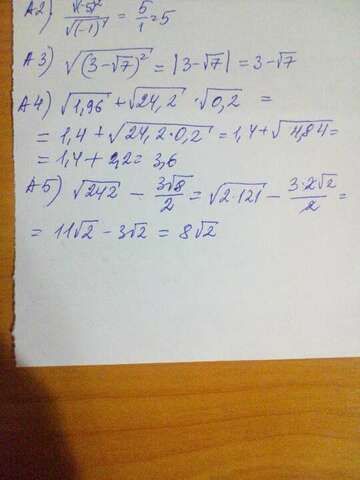 А2) √(-5)² / √(-1)² = 5/1 = 5
А3) √(3-√7)² = |3-√7| = 3-√7
А4) √1,96 + √24,2 · √0,2 =
= 1,4 + √24,2·0,2 = 1,4 + √4,84 =
= 1,4 + 2,2 = 3,6
А5) √242 - 3√8/2 = √2·121 - 3·2√2/2 =
= 11√2 - 3√2 = 8√2